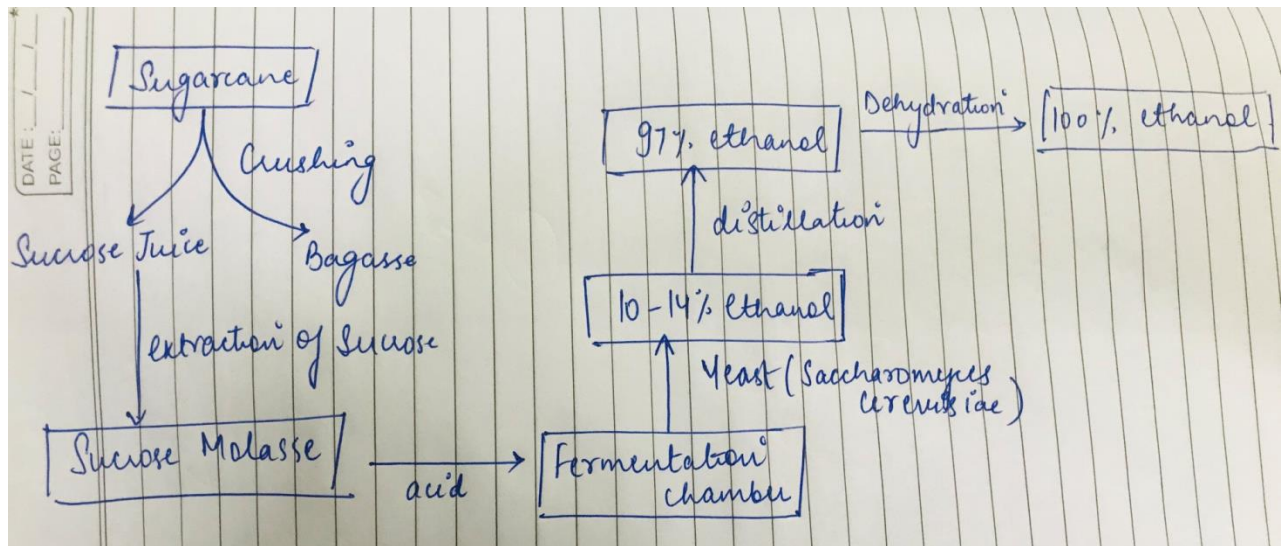 DATE: __/__/__
PAGE:
Sugarcane
Crushing
Sucrose Juice
Bagasse
extraction of Sucrose
Sucrose Molasse
acid
Fermentation
chamber
Yeast (Saccharomyces
cerevisiae)
10-14% ethanol
distillation
97% ethanol
Dehydration
100% ethanol